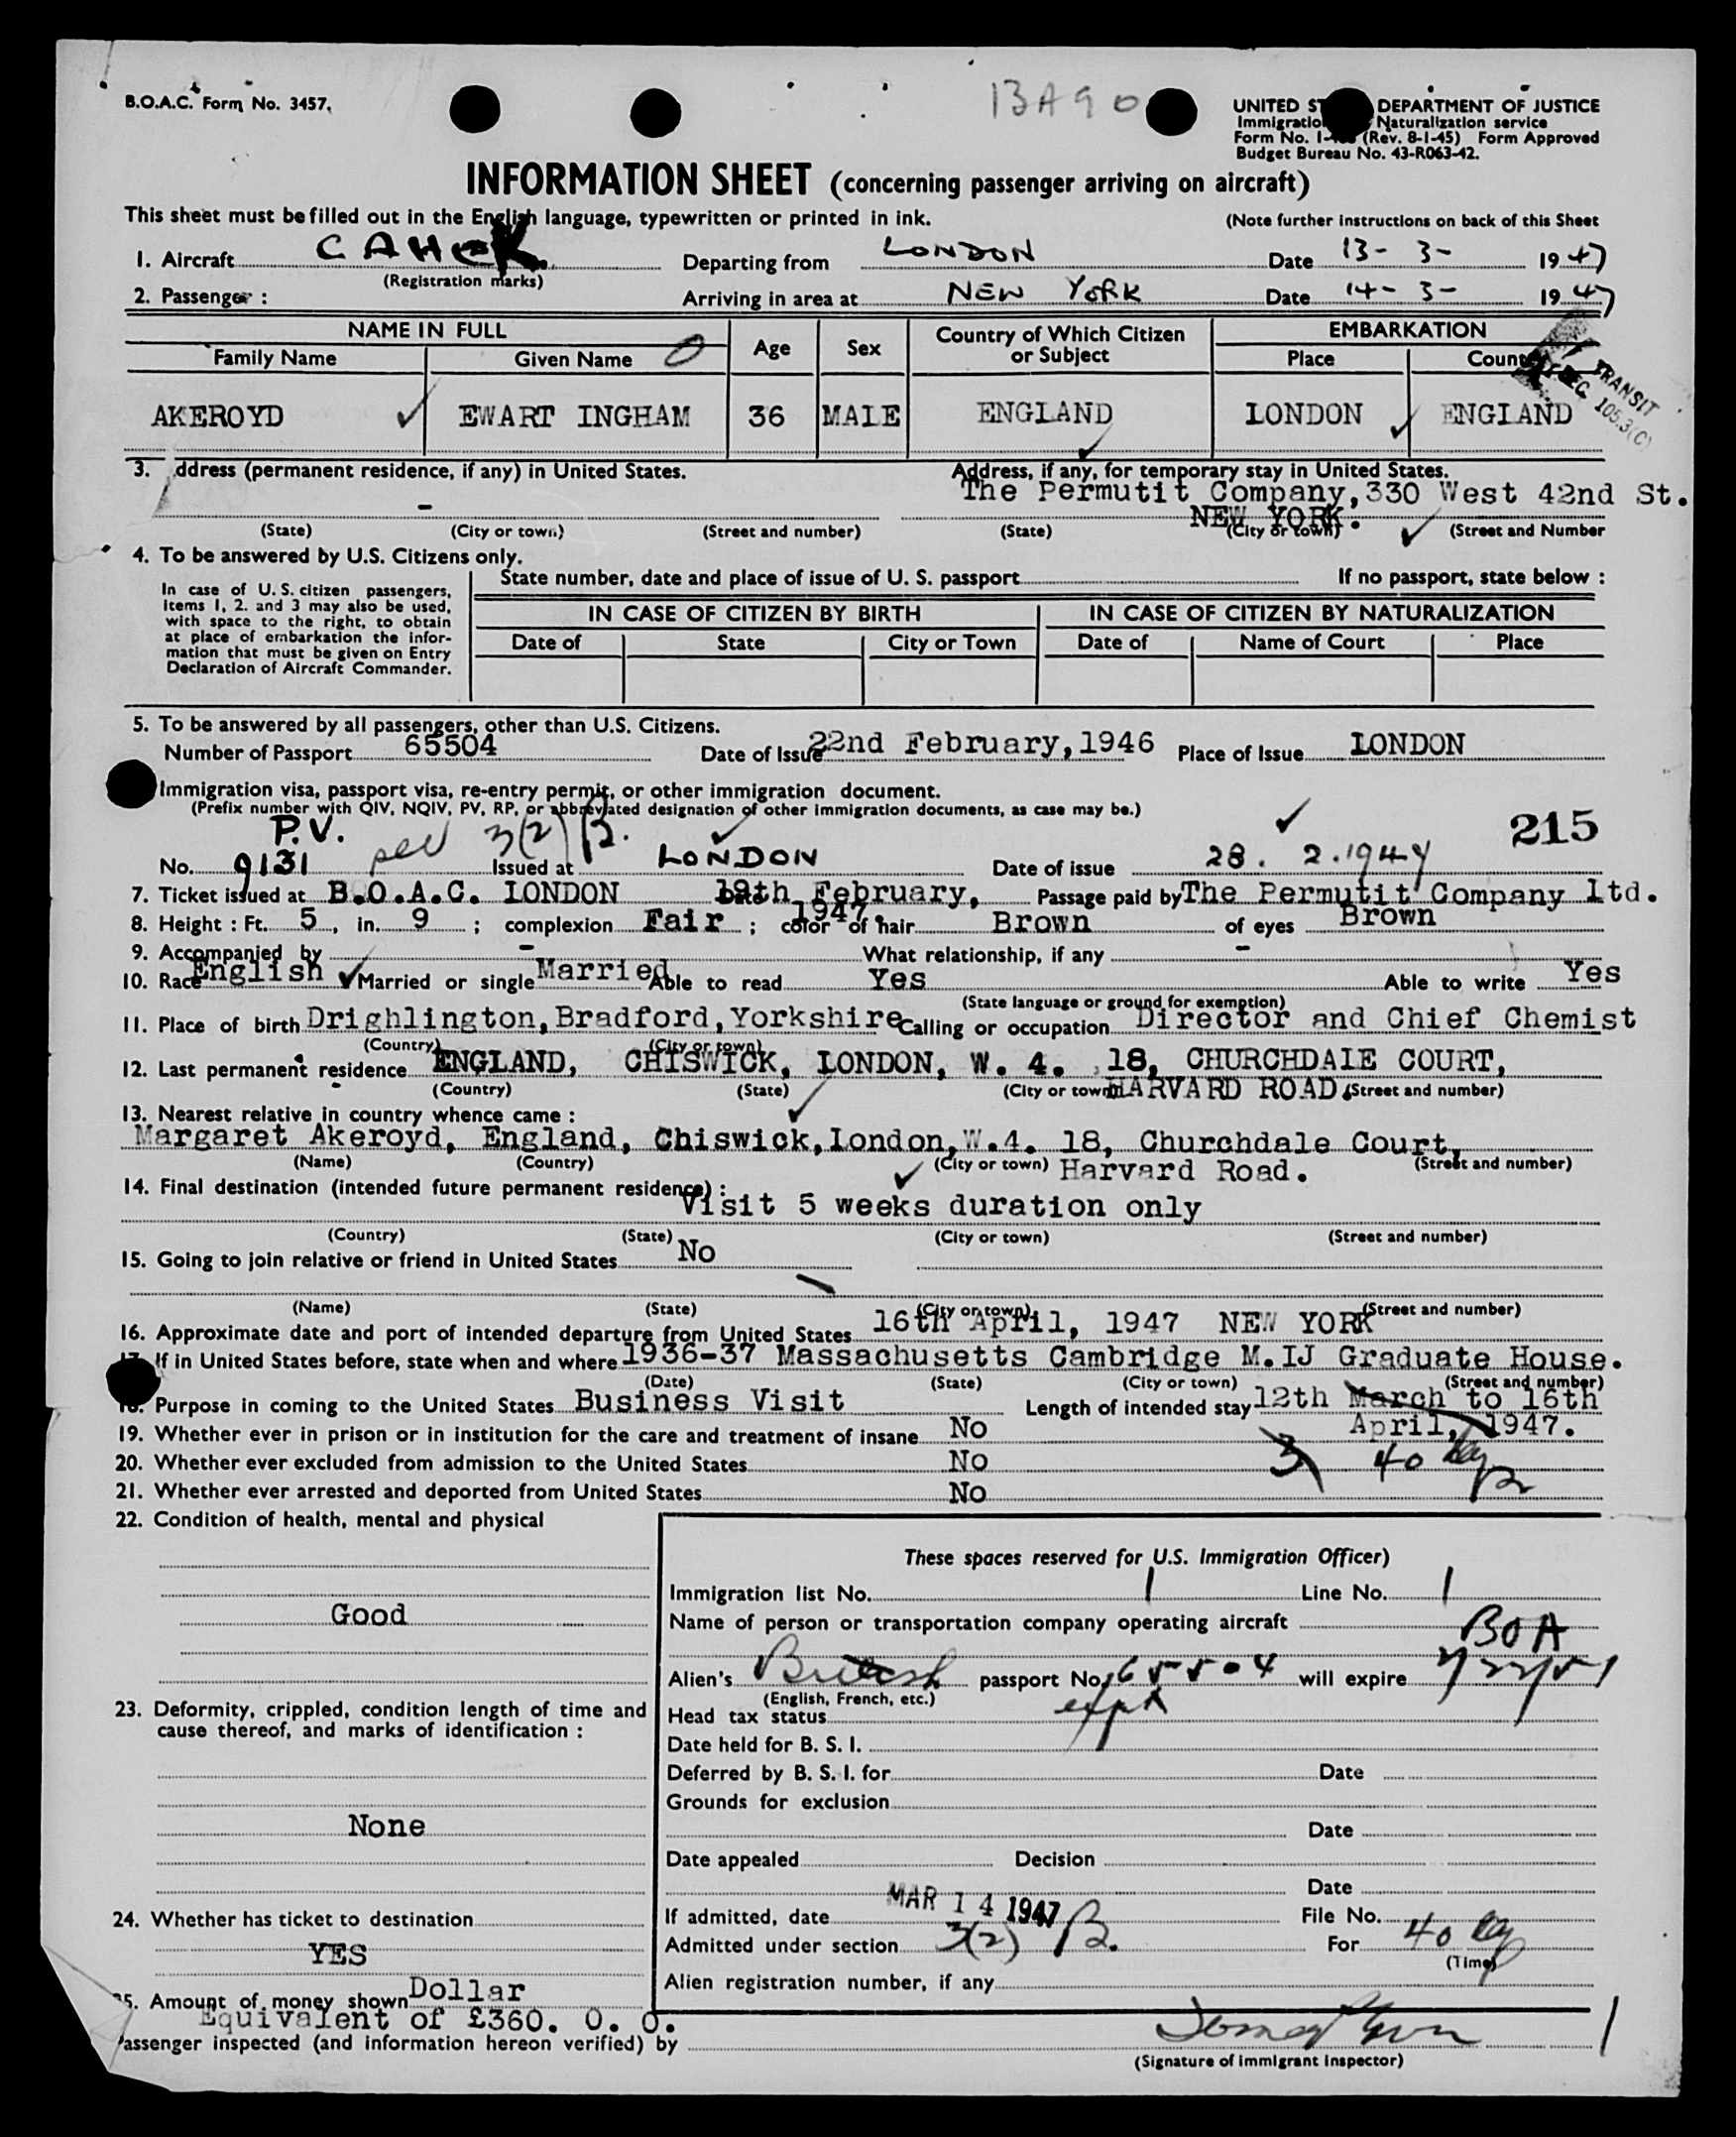 B.O.A.C. Form No. 3457.
13A90
UNITED ST DEPARTMENT OF JUSTICE
Immigratio Naturalization service
Form No. I- (Rev. 8-1-45) Form Approved
Budget Bureau No. 43-R063-42.
INFORMATION SHEET (concerning passenger arriving on aircraft)
This sheet must be filled out in the English language, typewritten or printed in ink.
(Note further instructions on back of this Sheet
1. Aircraft Departing from LONDON Date 13-3- 1947
(Registration marks)
2. Passenger : Arriving in area at NEW YORK Date 14-3- 1947
NAME IN FULL Age Sex Country of Which Citizen or Subject EMBARKATION
Family Name Given Name Place Count
TRANSIT
SEC. 105.3(C)
AKEROYD EWART INGHAM 36 MALE ENGLAND LONDON ENGLAND
3. ddress (permanent residence, if any) in United States. Address, if any, for temporary stay in United States.
The Permutit Company, 330 West 42nd St.
- NEW YORK.
(State) (City or town) (Street and number) (State) (City or town) (Street and Number
4. To be answered by U.S. Citizens only.
State number, date and place of issue of U. S. passport If no passport, state below :
In case of U. S. citizen passengers,
items 1, 2. and 3 may also be used,
with space to the right, to obtain
at place of embarkation the infor-
mation that must be given on Entry
Declaration of Aircraft Commander.
IN CASE OF CITIZEN BY BIRTH IN CASE OF CITIZEN BY NATURALIZATION
Date of State City or Town Date of Name of Court Place
5. To be answered by all passengers, other than U.S. Citizens.
Number of Passport 65504 Date of Issue 22nd February, 1946 Place of Issue LONDON
Immigration visa, passport visa, re-entry permit, or other immigration document.
(Prefix number with QIV, NQIV, PV, RP, or abbreviated designation of other immigration documents, as case may be.)
P.V. 3(2) B. 215
No. 9131 Issued at LONDON Date of issue 28. 2. 1947
7. Ticket issued at B.O.A.C. LONDON Date 19th February, 1947. Passage paid by The Permutit Company ltd.
8. Height : Ft. 5, in. 9 ; complexion Fair ; color of hair Brown of eyes Brown
9. Accompanied by - What relationship, if any -
10. Race English Married or single Married Able to read Yes Able to write Yes
(State language or ground for exemption)
11. Place of birth Drighlington, Bradford, Yorkshire Calling or occupation Director and Chief Chemist
(Country) (City or town)
12. Last permanent residence ENGLAND, CHISWICK, LONDON, W. 4. 18, CHURCHDALE COURT,
(Country) (State) (City or town) HARVARD ROAD. (Street and number)
13. Nearest relative in country whence came :
Margaret Akeroyd, England, Chiswick, London, W.4. 18, Churchdale Court,
(Name) (Country) (City or town) Harvard Road. (Street and number)
14. Final destination (intended future permanent residence) :
Visit 5 weeks duration only
(Country) (State) (City or town) (Street and number)
15. Going to join relative or friend in United States No
(Name) (State) (City or town) (Street and number)
16. Approximate date and port of intended departure from United States 16th April, 1947 NEW YORK
If in United States before, state when and where 1936-37 Massachusetts Cambridge M.IJ Graduate House.
(Date) (State) (City or town) (Street and number)
18. Purpose in coming to the United States Business Visit Length of intended stay 12th March to 16th
April, 1947.
19. Whether ever in prison or in institution for the care and treatment of insane No
20. Whether ever excluded from admission to the United States No 40
21. Whether ever arrested and deported from United States No
22. Condition of health, mental and physical
Good
These spaces reserved for U.S. Immigration Officer)
Immigration list No. 1 Line No. 1
Name of person or transportation company operating aircraft BOA
Alien's British passport No. 65504 will expire
(English, French, etc.)
Head tax status
Date held for B. S. I.
Deferred by B. S. I. for Date
Grounds for exclusion
Date
Date appealed Decision
Date
If admitted, date MAR 14 1947 File No.
Admitted under section 3(2) B. For 40
(Time)
Alien registration number, if any
23. Deformity, crippled, condition length of time and
cause thereof, and marks of identification :
None
24. Whether has ticket to destination
YES
25. Amount of money shown Dollar
Equivalent of £360. 0. 0.
Passenger inspected (and information hereon verified) by
(Signature of immigrant inspector)